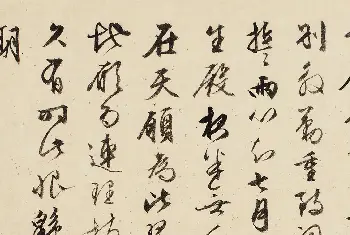 別殷勤重寄詞
誓兩心知七月
生殿夜半無人
在天願為比翼
地願為連理枝
久有時此恨綿
期